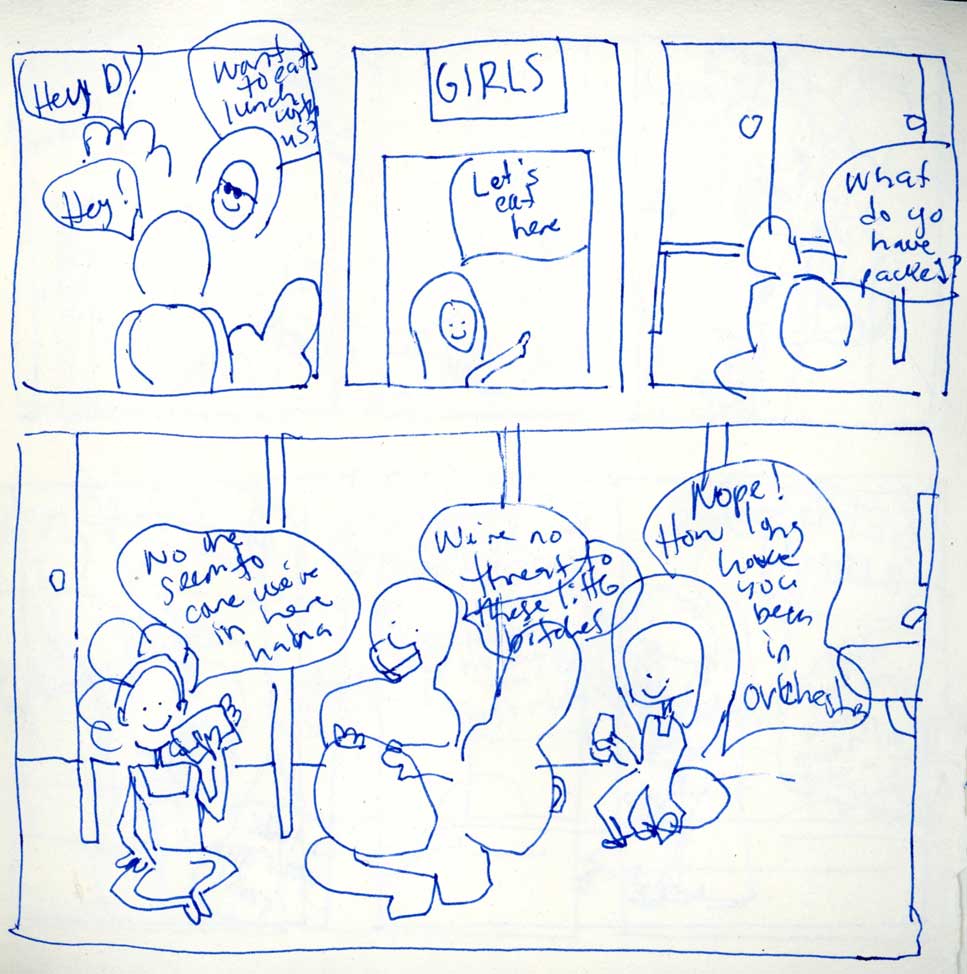 Hey D!
Want
to eat
lunch
with
us?
Hey!
GIRLS
Let's
eat
here
What
do yo
have
packed?
No one
seem to
care we're
in here
haha
We're no
threat to
these little
bitches
Nope!
How long
have
you
been
in
orkhestra